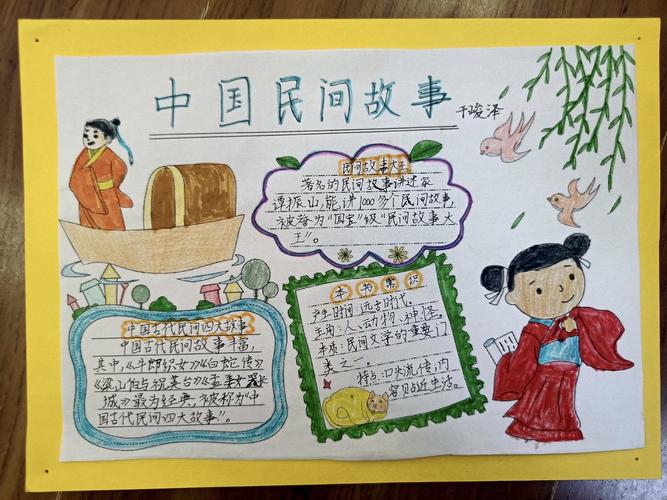 中国民间故事
于峻泽
民间故事大王
著名的民间故事讲述家
谭振山,能讲1000多个民间故事,
被誉为“国宝”级“民间故事大
王”。
本书常识
产生时间:远古时代。
主角:人、动物、神怪。
本质:民间文学的重要门
类之一。
特点:口头流传,内
容贴近生活。
中国古代民间四大故事
中国古代民间故事丰富,
其中,《牛郎织女》《白蛇传》
《梁山伯与祝英台》《孟姜女哭长
城》最为经典,被称为“中
国古代民间四大故事”。